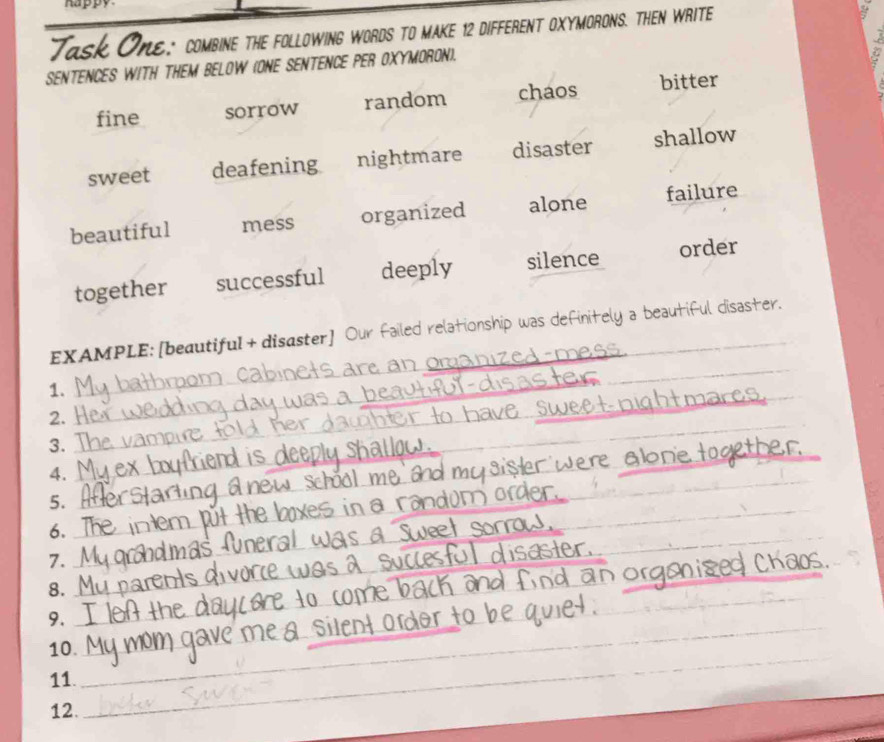 happy.
Task One: COMBINE THE FOLLOWING WORDS TO MAKE 12 DIFFERENT OXYMORONS. THEN WRITE
SENTENCES WITH THEM BELOW (ONE SENTENCE PER OXYMORON).
fine sorrow random chaos bitter
sweet deafening nightmare disaster shallow
beautiful mess organized alone failure
together successful deeply silence order
EXAMPLE: [beautiful + disaster] Our failed relationship was definitely a beautiful disaster.
1. My bathroom cabinets are an organized-mess.
2. Her wedding day was a beautiful-disaster.
3. The vampire told her daughter to have sweet-nightmares.
4. My ex boyfriend is deeply shallow.
5. After starting a new school me and my sister were alone together.
6. The intern put the boxes in a random order.
7. My grandmas funeral was a sweet sorrow.
8. My parents divorce was a succesful disaster.
9. I left the daycare to come back and find an organized chaos.
10. My mom gave me a silent order to be quiet.
11.
12.